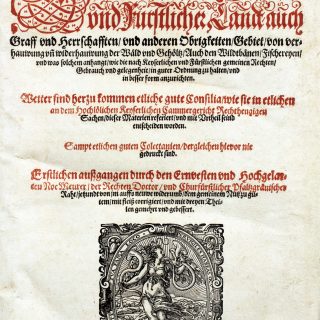 und Fürstlicher Land auch
Graff und Herrschafften/ und anderen Obrigkeiten/ Gebiet/ von ver-
hauwung uñ widerhauwung der Wäld und Gehöltz/ Auch den Wildbänen/ Fischereyen/
und was solchem anhangt/ wie die nach Keyserlichen und Fürstlichen gemeinen Rechten/
Gebrauch und gelegenheit/ in guter Ordnung zu halten/ und
in besser form anzurichten.
Weiter sind herzu kommen etliche gute Consilia/ wie sie in etlichen
an dem Hochlöblichen Keyserlichen Cammergericht Rechthengigen
Sachen/ dieser Materien referiert/ und mit Urtheil seind
entscheiden worden.
Sampt etlichen guten Collectanien/ dergleichen hievor nie
gedruckt sind.
Erstlichen außgangen durch den Ernvesten und Hochgelar-
ten Noe Meurer/ der Rechten Doctor/ und Churfürstlicher Pfaltzgräuischer
Raht/ jetzundt von jm auffs neuwe widerumb/ dem gemeinen Nutz zu gü-
tem/ mit fleiß corrigiert/ und mit dreyen Thei-
len gemehrt und gebessert.